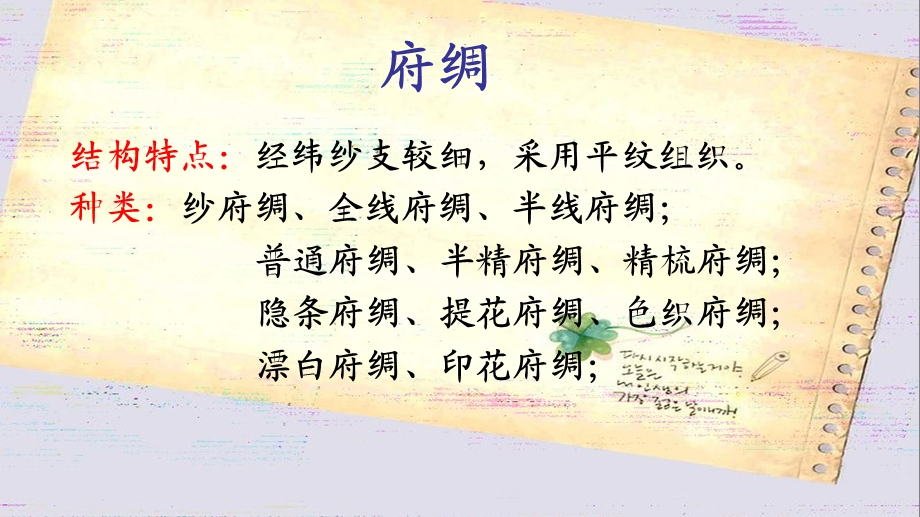 府绸
结构特点：经纬纱支较细，采用平纹组织。
种类：纱府绸、全线府绸、半线府绸；
普通府绸、半精府绸、精梳府绸；
隐条府绸、提花府绸、色织府绸；
漂白府绸、印花府绸；
다시 시작하는거야.
오늘은
내 인생의
가장 젊은 날이니까!